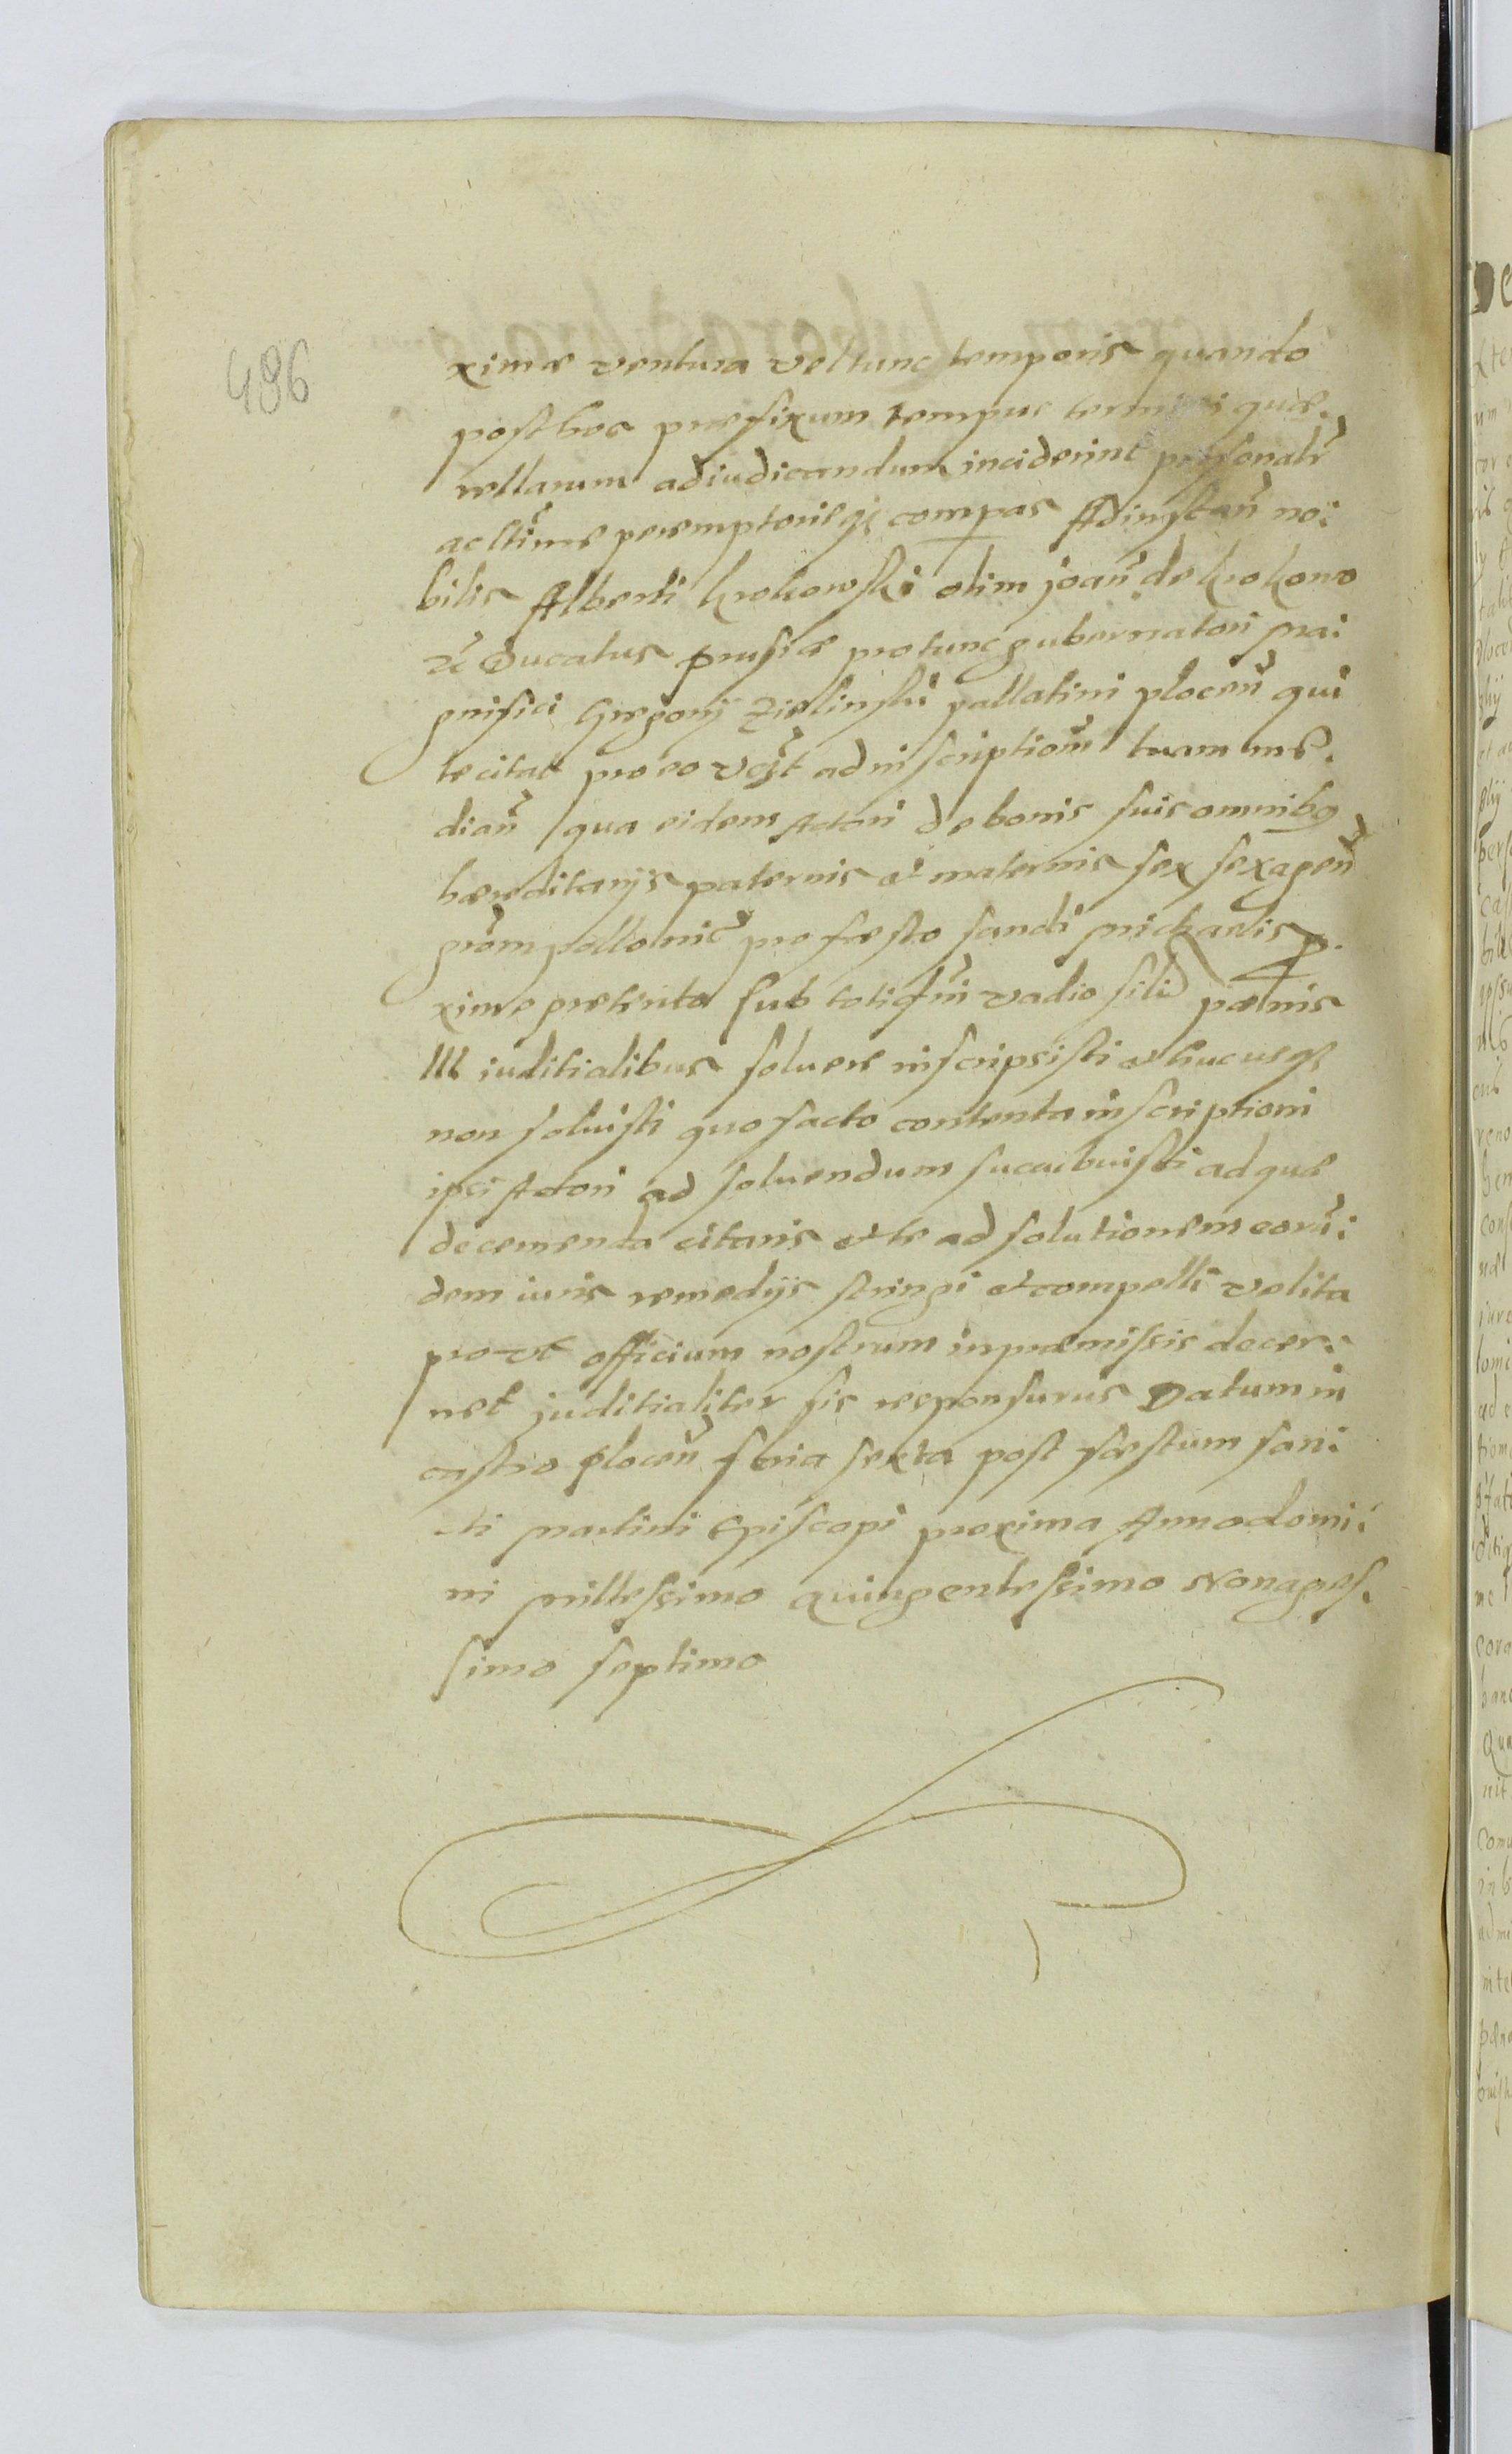 486
ximæ ventura vel tunc temporis quando
post hoc præfixum tempus termini quæ.
rellarum adiudicandum inciderint personalr̃
ac ltĩme peremptorieqȝ compar Adinstan̄ no:
bilis Alberti krokowski olim joan̄ de krokowo
Ducatus prusiæ protunc gubernatori Ma:
gnifici Gregorij Zielinski pallatini plocen̄ qui
te citat pro eo ad inscriptiom̄ tuam me.
dian̄ qua eidem Actori de bonis suis omnibq
hæreditarijs paternis et maternis sex sexagen̄
pollonic̄ pro fæsto sancti Michaelis p.
xime præterito sub vadio pænis
III iuditialibus soluere inscripsisti et hucusqȝ
non soluisti quo facto contenta inscriptioni
ipsi Actori ad soluendum sucubuisti ad quæ
decernenda citaris et te ad solutionem eorū:
dem iuris remedijs stringi et compelli velita
pro ut officium nostrum in præmissis decer:
net juditialiter sis responsurus Datum in
castro plocen̄ feria sexta post fæstum san:
cti Martini Episcopi proxima Anno domi:
ni Millessimo quingentessimo Nonages.
simo septimo